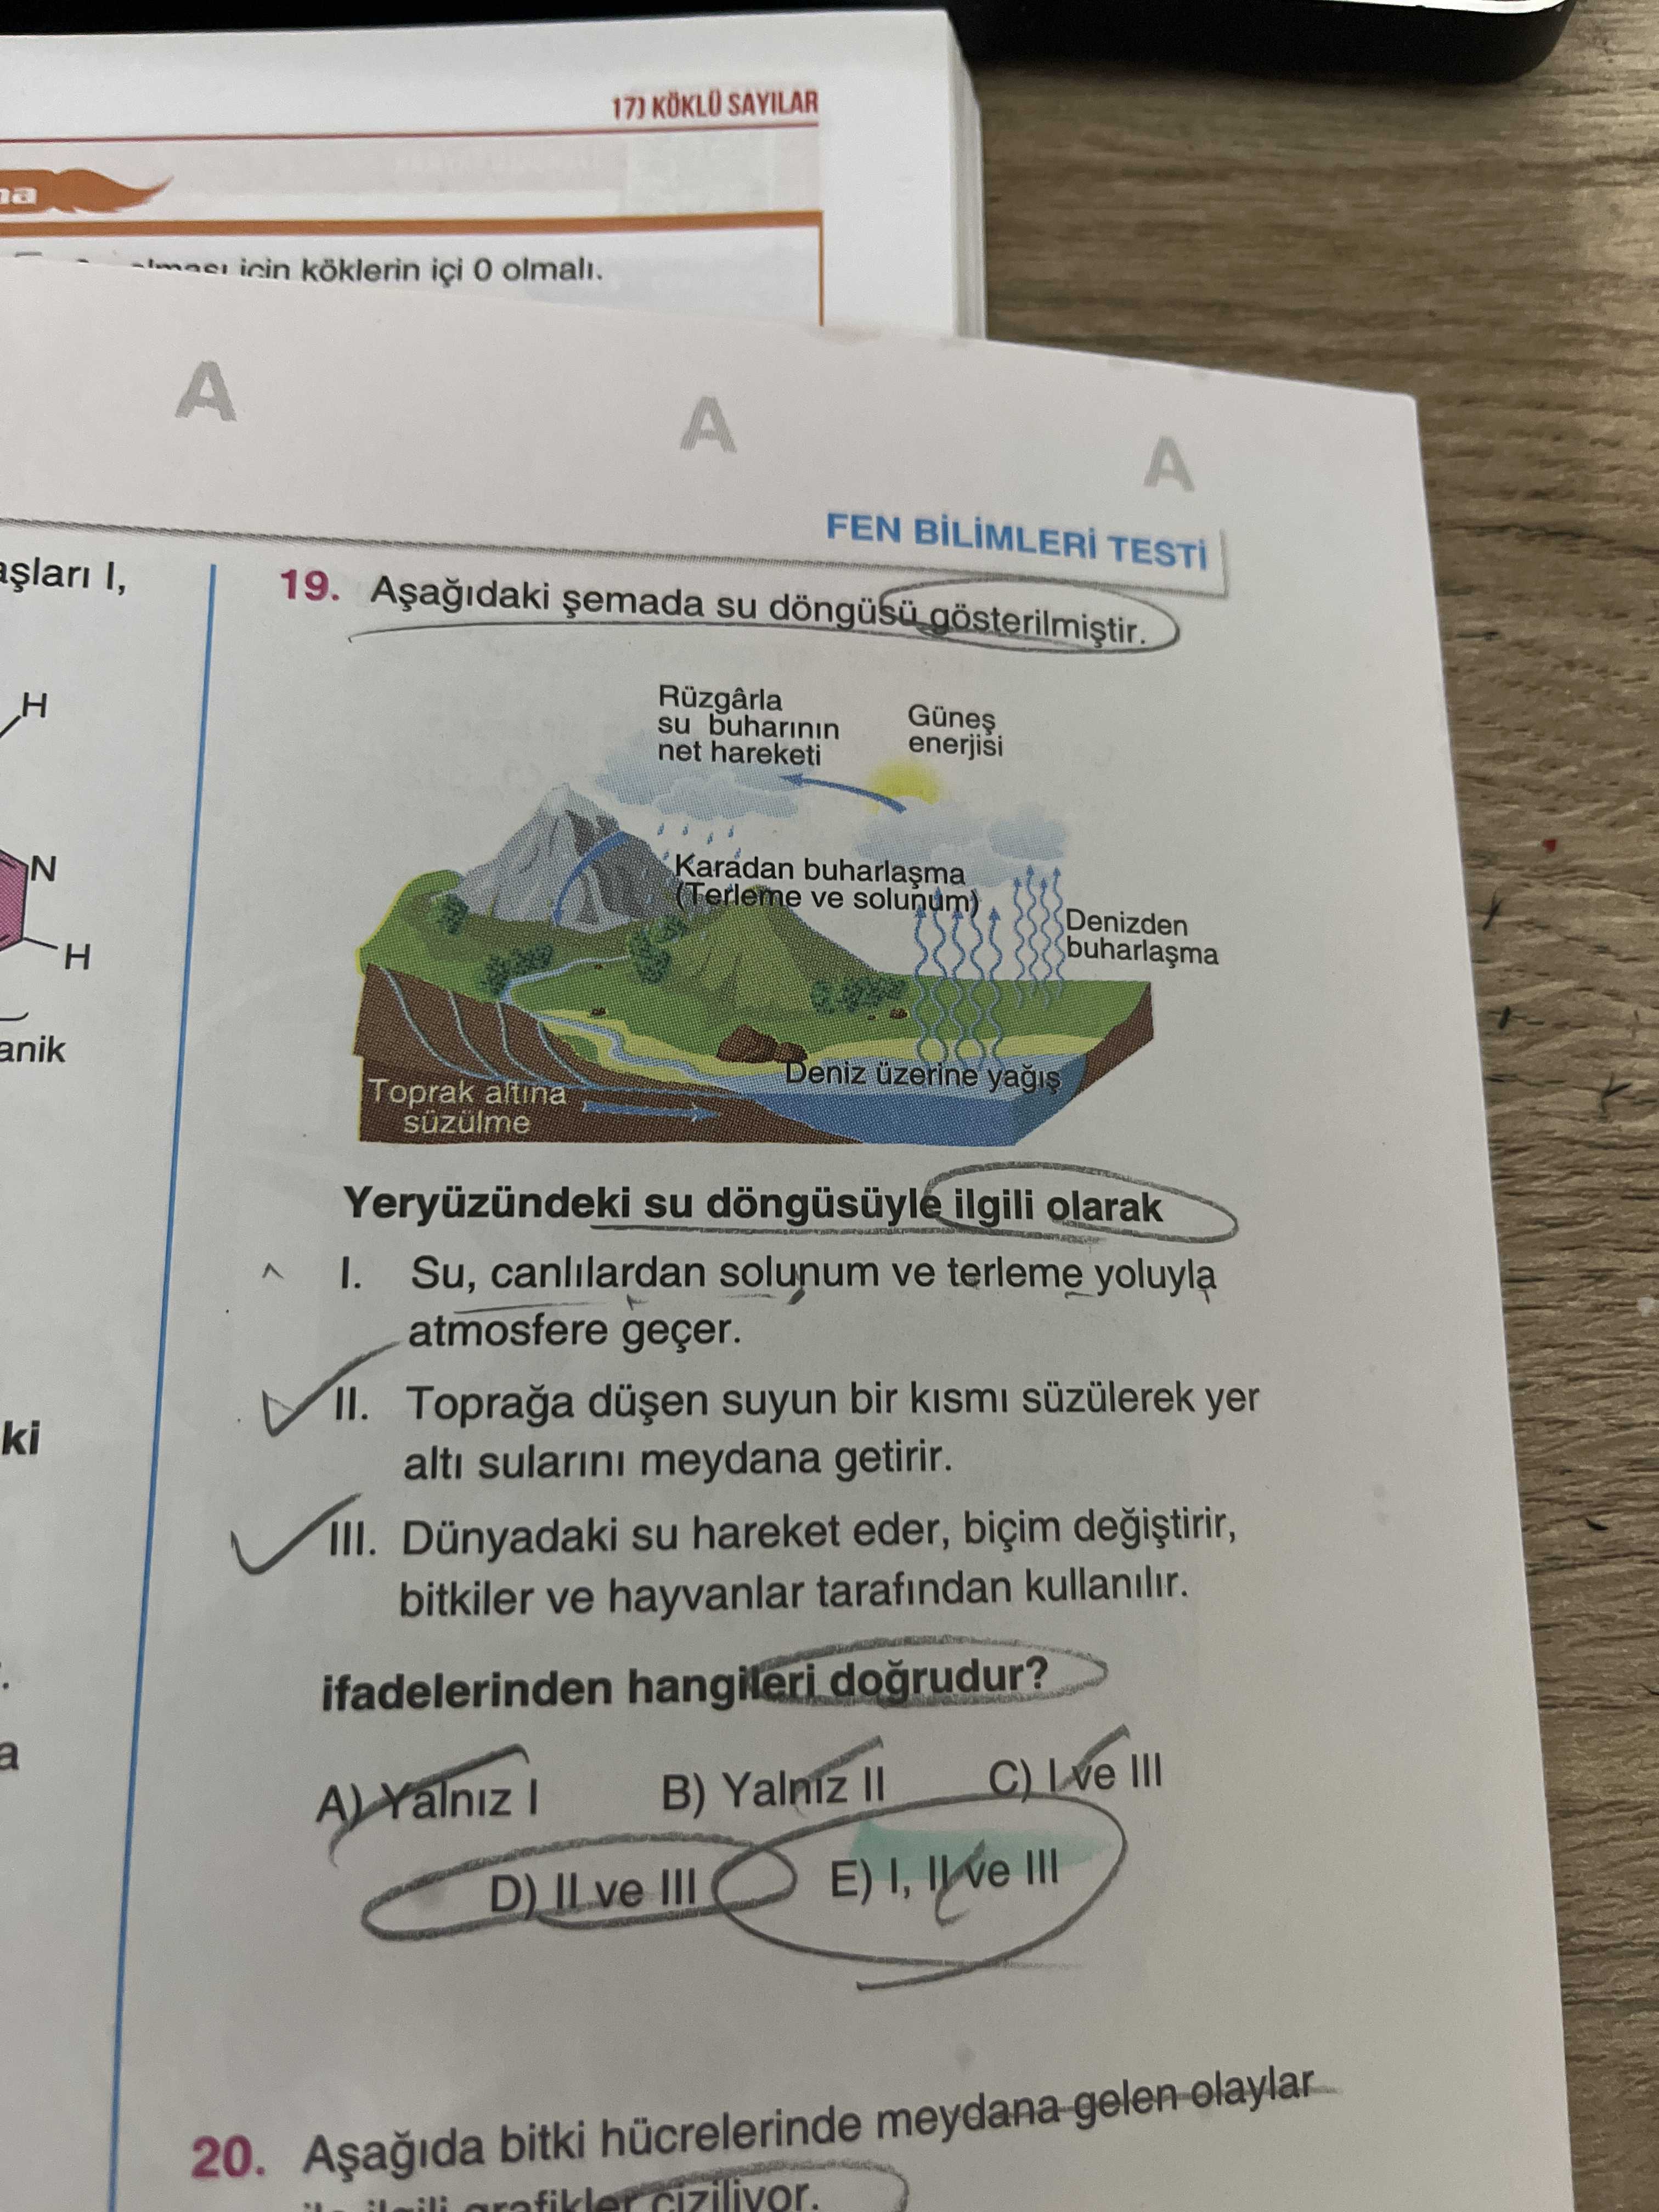 17) KÖKLÜ SAYILAR
na
için köklerin içi 0 olmalı.
A A A
FEN BİLİMLERİ TESTİ
aşları I,
H
N
H
anik
ki
a
19. Aşağıdaki şemada su döngüsü gösterilmiştir.
Rüzgârla
su buharının
net hareketi
Güneş
enerjisi
Karadan buharlaşma
(Terleme ve solunum)
Denizden
buharlaşma
Deniz üzerine yağış
Toprak altına
süzülme
Yeryüzündeki su döngüsüyle ilgili olarak
I. Su, canlılardan solunum ve terleme yoluyla
atmosfere geçer.
II. Toprağa düşen suyun bir kısmı süzülerek yer
altı sularını meydana getirir.
III. Dünyadaki su hareket eder, biçim değiştirir,
bitkiler ve hayvanlar tarafından kullanılır.
ifadelerinden hangileri doğrudur?
A) Yalnız I B) Yalnız II C) I ve III
D) II ve III E) I, II ve III
20. Aşağıda bitki hücrelerinde meydana gelen olaylar
ile ilgili grafikler çiziliyor.